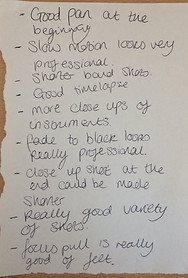 - Good pan at the
beginning
- Slow motion looks very
professional.
- Shorter band shots.
- Good timelapse
- more close ups of
instruments.
- fade to black looks
Really professional.
- close up shot at the
end could be made
shorter
- Really good variety
of shots.
- focus pull is really
good of feet.